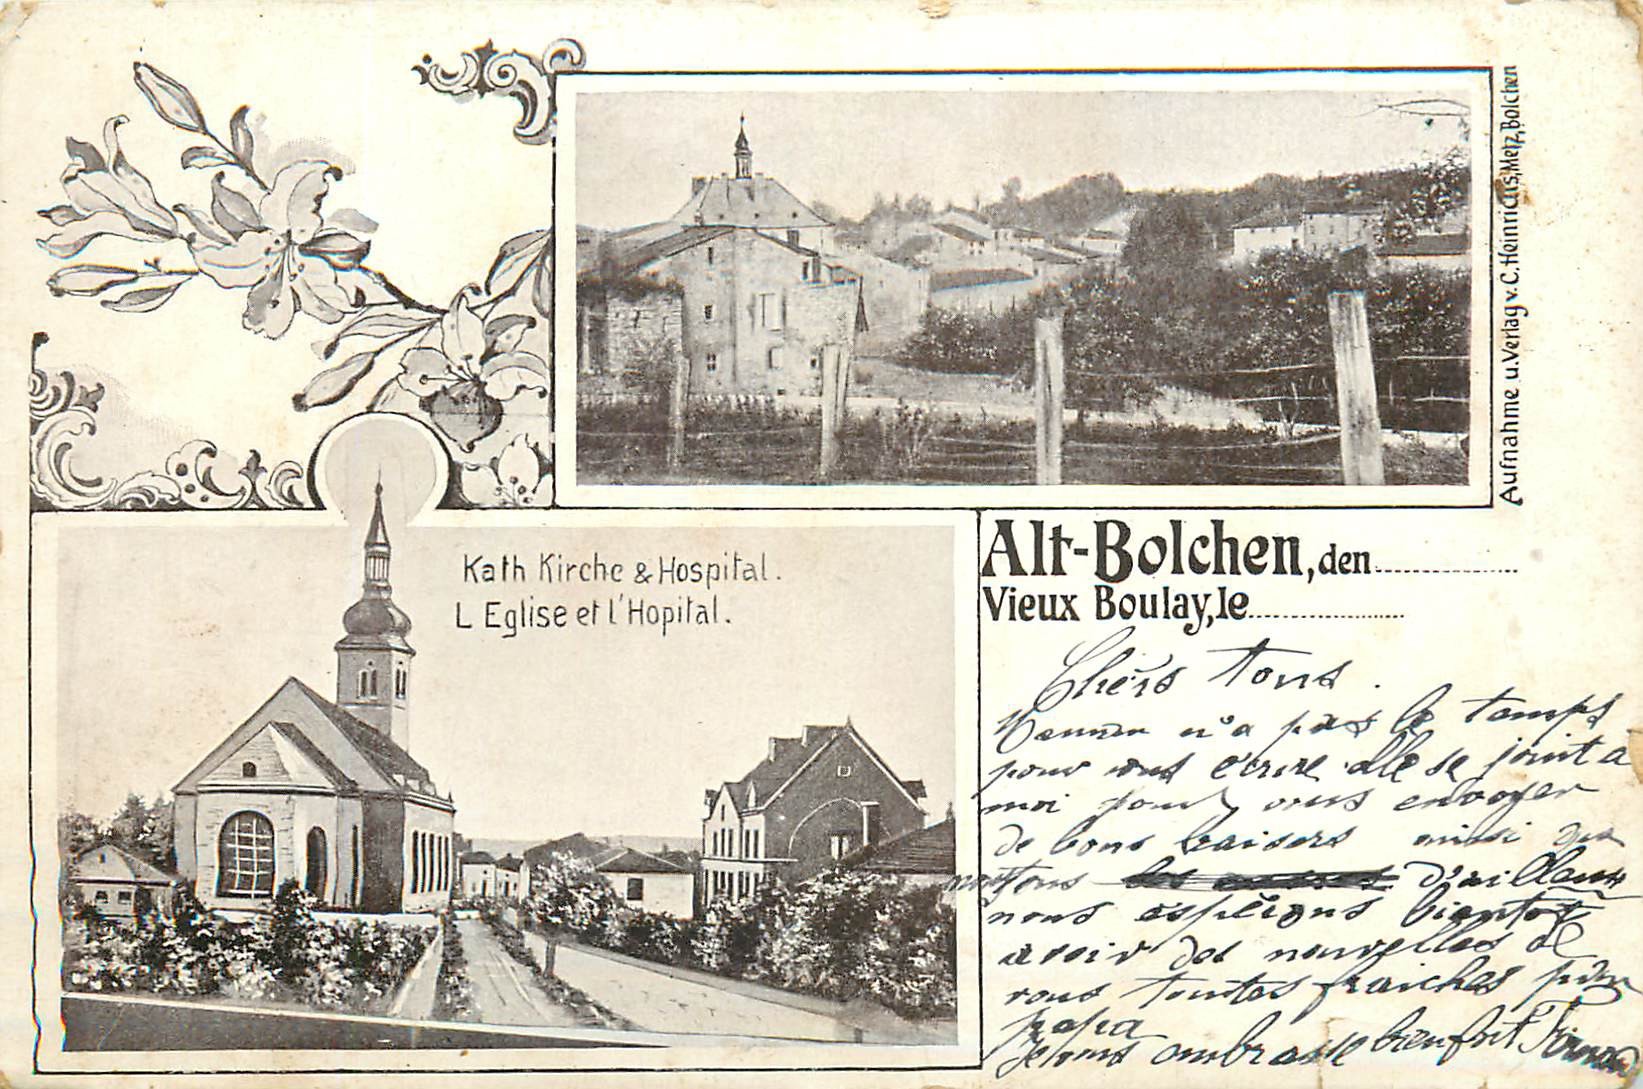 Aufnahme u. Verlag v. C. Heinrichs, Metz, Bolchen
Kath Kirche & Hospital.
L Eglise et l'Hopital.
Alt-Bolchen, den
Vieux Boulay, le
Chèrs tous.
n'a pas le temps
pour vous écrire elle se joint a
moi pour vous envoyer
de bons baisers ainsi que
tous d'ailleurs
nous espérons bientôt
avoir des nouvelles de
vous toutes fraiches par
papa
Je vous embrasse bien fort